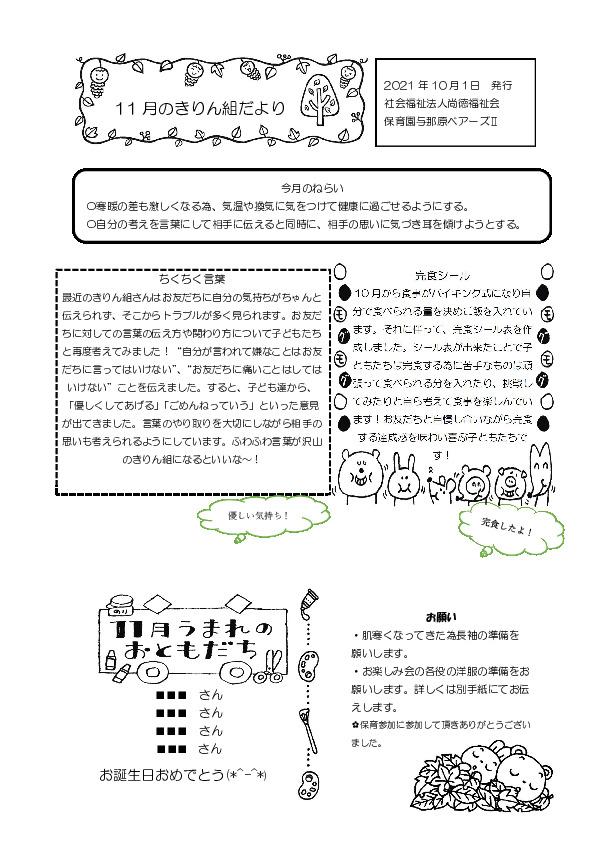 11月のきりん組だより
2021年10月1日　発行
社会福祉法人尚徳福祉会
保育園与那原ベアーズⅡ
今月のねらい
〇寒暖の差も激しくなる為、気温や換気に気をつけて健康に過ごせるようにする。
〇自分の考えを言葉にして相手に伝えると同時に、相手の思いに気づき耳を傾けようとする。
ちくちく言葉
最近のきりん組さんはお友だちに自分の気持ちがちゃんと
伝えられず、そこからトラブルが多く見られます。お友だ
ちに対しての言葉の伝え方や関わり方について子どもたち
と再度考えてみました！“自分が言われて嫌なことはお友
だちに言ってはいけない”、“お友だちに痛いことはしては
いけない”ことを伝えました。すると、子ども達から、
「優しくしてあげる」「ごめんねっていう」といった意見
が出てきました。言葉のやり取りを大切にしながら相手の
思いも考えられるようにしています。ふわふわ言葉が沢山
のきりん組になるといいな～！
優しい気持ち！
完食シール
10月から食事がバイキング式になり自
分で食べられる量を決めご飯を入れてい
ます。それに伴って、完食シール表を作
成しました。シール表が出来たことで子
どもたちは完食する為に苦手なものは頑
張って食べられる分を入れたり、挑戦し
てみたりと自ら考えて食事を楽しんでい
ます！お友だちと自慢し合いながら完食
する達成感を味わい喜ぶ子どもたちで
す！
モ
グ
モ
グ
モ
グ
モ
グ
完食したよ！
のり
11月うまれの
おともだち
■■■　さん
■■■　さん
■■■　さん
■■■　さん
お誕生日おめでとう(*^-^*)
お願い
・肌寒くなってきた為長袖の準備を
願いします。
・お楽しみ会の各役の洋服の準備をお
願いします。詳しくは別手紙にてお伝
えします。
✿保育参加に参加して頂きありがとうござい
ました。